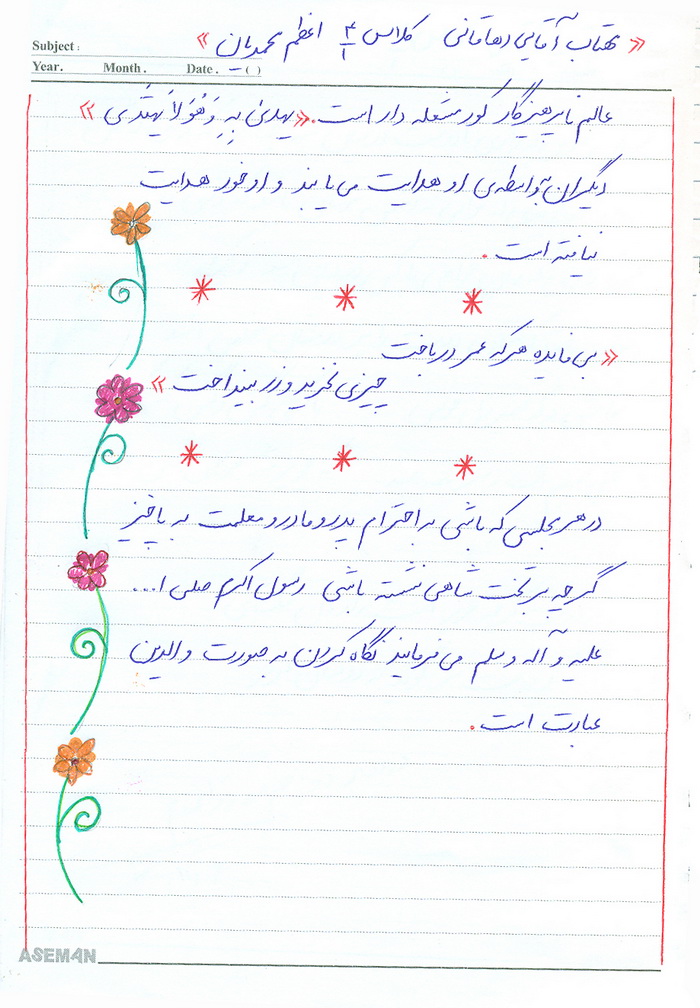 « مهتاب آقایی دهاقانی کلاس ۴/۱ اعظم محمدیان »
Subject :
Year. Month . Date . – ( )
عالم ناپرهیزگار کور مشعله دار است. «یهدیٰ بِهِ وَ هُوَ لاٰ یَهتَدی»
دیگران به واسطه‌ی او هدایت می یابند و او خود هدایت
نیافته است .
« بی فایده هر که عمر در باخت
چیزی نخرید و زر بینداخت »
در هر مجلسی که باشی به احترام پدر و مادر و معلمت به پا خیز
گر چه بر تخت شاهی نشسته باشی رسول اکرم صلی ا...
علیه و آله وسلم می فرمایند نگاه کردن به صورت والدین
عبادت است .
ASEMAN